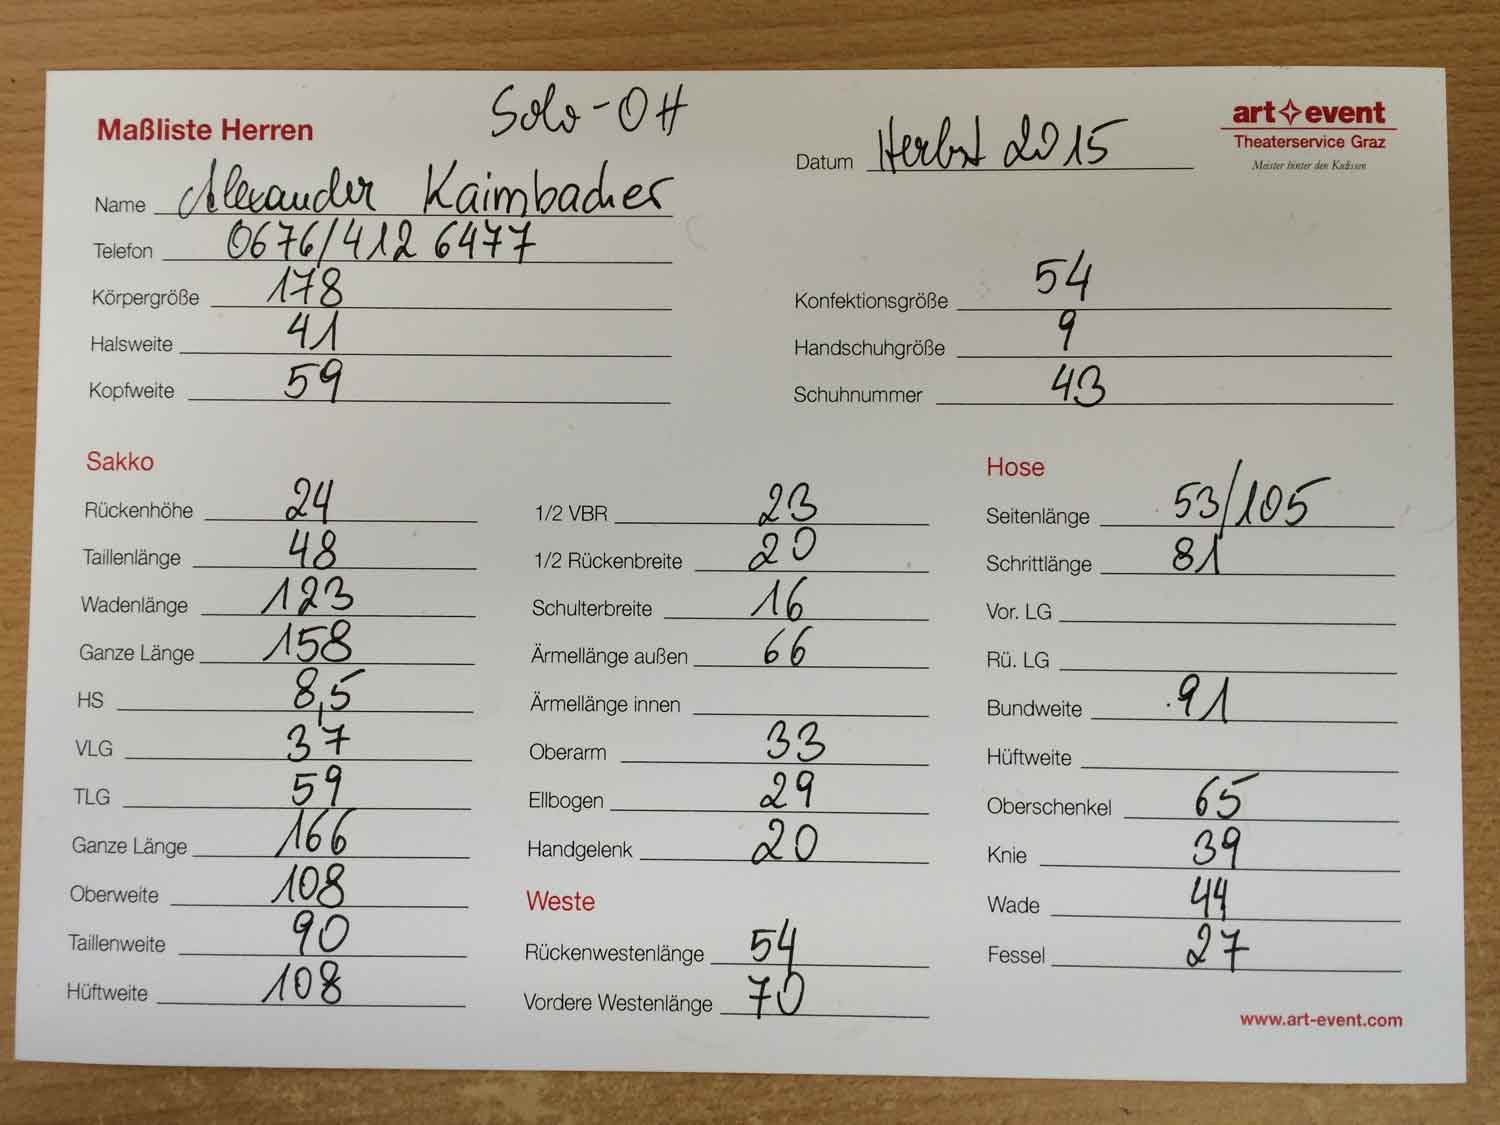 Solo-OH
Maßliste Herren
art event
Theaterservice Graz
Meister hinter den Kulissen
Datum Herbst 2015
Name Alexander Kaimbacher
Telefon 0676/412 6477
Körpergröße 178
Halsweite 41
Kopfweite 59
Konfektionsgröße 54
Handschuhgröße 9
Schuhnummer 43
Sakko
Rückenhöhe 24
Taillenlänge 48
Wadenlänge 123
Ganze Länge 158
HS 8,5
VLG 37
TLG 59
Ganze Länge 166
Oberweite 108
Taillenweite 90
Hüftweite 108
1/2 VBR 23
1/2 Rückenbreite 20
Schulterbreite 16
Ärmellänge außen 66
Ärmellänge innen
Oberarm 33
Ellbogen 29
Handgelenk 20
Weste
Rückenwestenlänge 54
Vordere Westenlänge 70
Hose
Seitenlänge 53/105
Schrittlänge 81
Vor. LG
Rü. LG
Bundweite 91
Hüftweite
Oberschenkel 65
Knie 39
Wade 44
Fessel 27
www.art-event.com